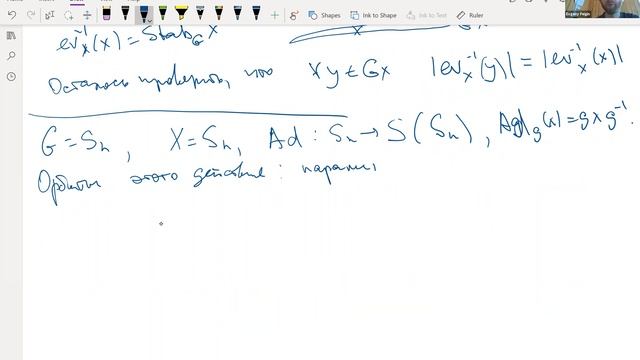 Shapes Ink to Shape Ink to Text Ruler
Evgeny Feigin
ev_x^{-1}(x) = Stab_G x
Осталось проверить, что ∀ y ∈ Gx |ev_x^{-1}(y)| = |ev_x^{-1}(x)|
G = S_n, X = S_n, Ad : S_n → S(S_n), Ad_g(x) = g x g^{-1}
Орбиты этого действия: парами